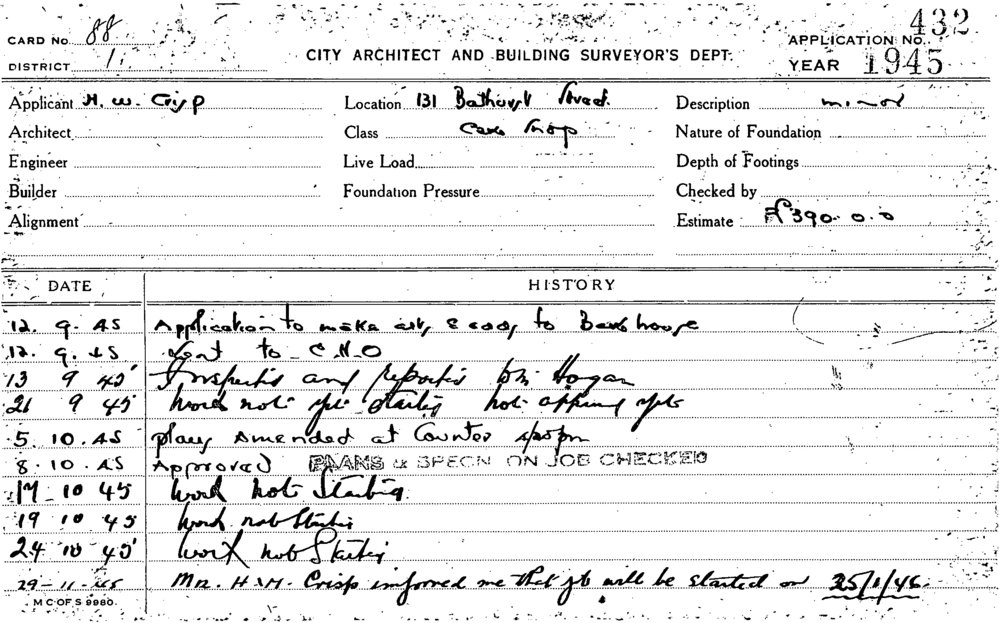 CARD No. 88
DISTRICT 1.
CITY ARCHITECT AND BUILDING SURVEYOR'S DEPT.
APPLICATION No. 432
YEAR 1945
Applicant H. W. Crisp
Location 131 Bathurst Street.
Description minor
Architect
Class Cake Shop
Nature of Foundation
Engineer
Live Load
Depth of Footings
Builder
Foundation Pressure
Checked by
Alignment
Estimate £390.0.0
DATE HISTORY
12. 9. 45 Application to make alts & adds to Bakehouse
12. 9. 45 Sent to C.H.O
13 9 45 Inspected and reported Hogan
21 9 45 Work not yet started not approved yet
5. 10. 45 plans Amended at Counter
8. 10. 45 Approved PLANS & SPECN ON JOB CHECKED
17 10 45 Work not Started
19 10 45 Work not Started
24 10 45 Work not Started
29-11-45 Mr. H.W. Crisp informed me that job will be started on 25/1/46.
M C OF S 9980.